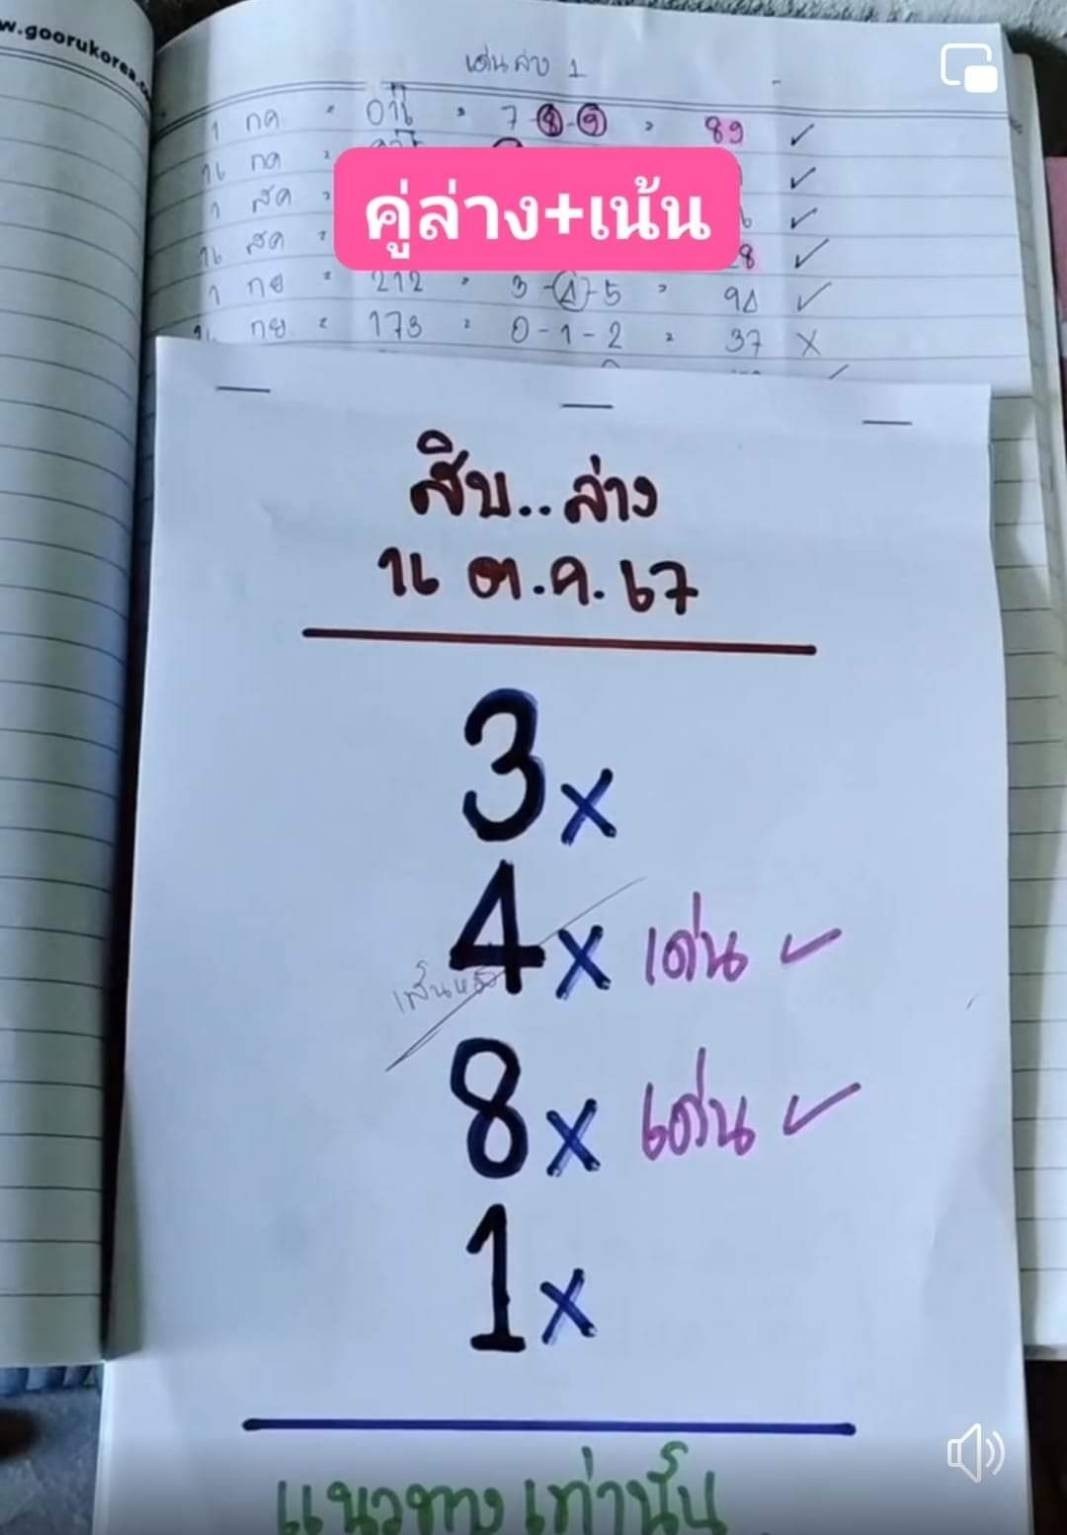 w.goorukorea.
เด่นล่าง 1
1 กค " 016 " 7-8-9 " 89 ✓
16 กค " ✓
1 สค " ✓
16 สค " 28 ✓
1 กย " 212 " 3-4-5 " 94 ✓
16 กย " 173 " 0-1-2 " 37 X
คู่ล่าง+เน้น
สิบ..ล่าง
16 ต.ค. 67
3x
4x เด่น ✓
8x เด่น ✓
1x
แนวทางเท่านั้น